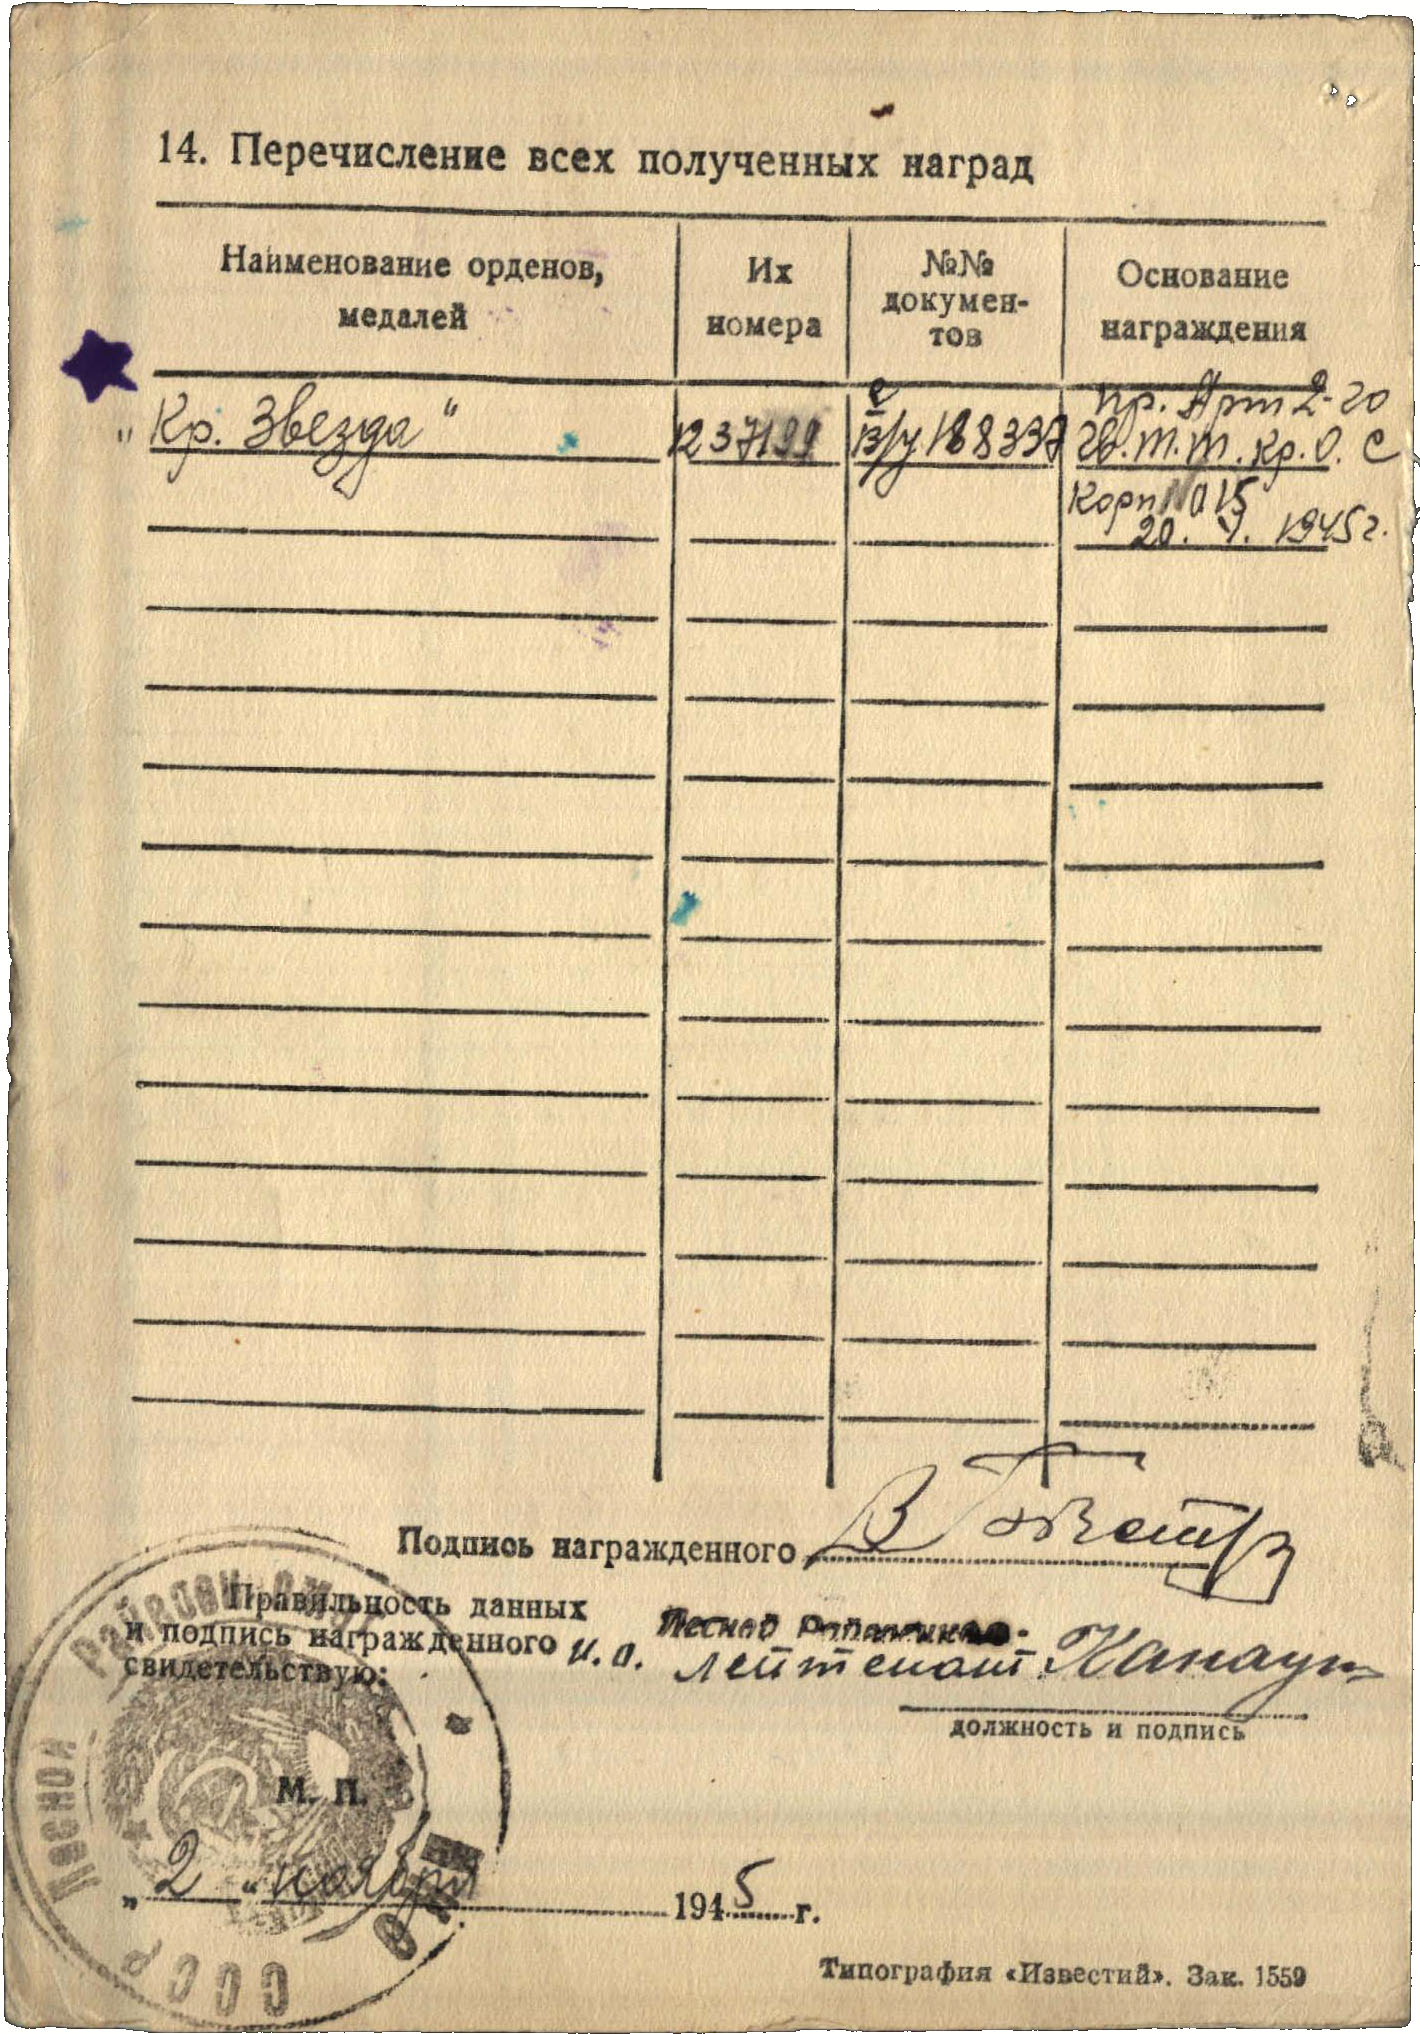 14. Перечисление всех полученных наград
Наименование орденов,
медалей
Их
номера
№№
докумен-
тов
Основание
награждения
„Кр. Звезда“
1237199
с
В/у 188337
Пр. Арт 2-го
гв. т. т. Кр. О. С
Корп № 015
20. V. 1945 г.
Подпись награжденного
Правильность данных
и подпись награжденного
свидетельствую:
и. о.
лейтенант
должность и подпись
М. П.
„ 2 “ ноября 1945 г.
Типография «Известий». Зак. 1559
Лесной
Райвоен
СССР
НКО